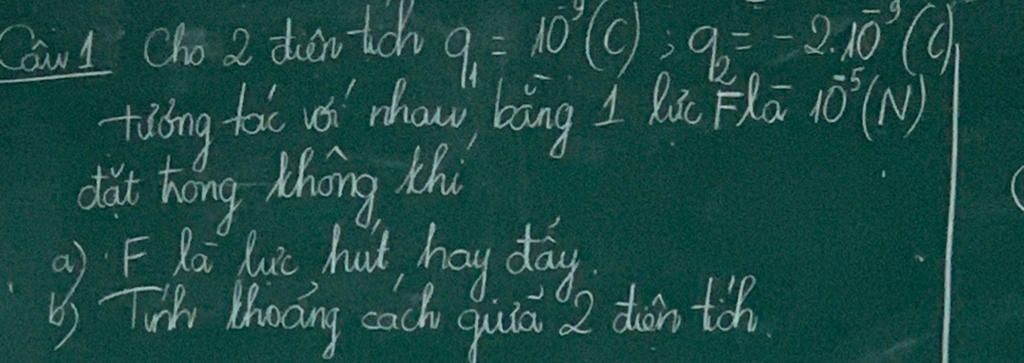 Câu 1 Cho 2 điện tích q₁ = 10⁻⁹ (C) ; q₂ = -2.10⁻⁹ (C)
tương tác với nhau bằng 1 lực F là 10⁻⁵ (N)
đặt trong không khí
a) F là lực hút, hay đẩy.
b) Tính khoảng cách giữa 2 điện tích.